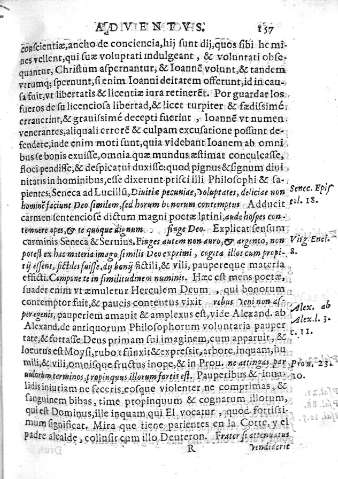 ADVENTVS. 157
conscientiæ, ancho de conciencia, hij sunt dij, quos sibi homi
nes vellent, qui suæ voluptati indulgeant, & voluntati obse
quantur, Christum aspernantur, & Ioannē volunt, & tandem
vtrumq; spernent, si enim Ioanni deitatem offerunt, id in cau
sa fuit, vt libertatis & licentiæ iura retinerēt. Por guardar los
fueros de su licenciosa libertad, & licet turpiter & fœdissimè
errauerint, & grauissimè decepti fuerint, Ioannē vt numen
venerantes, aliquali errorē & culpam excusatione possunt de-
fendere, inde enim moti sunt, quia videbant Ioanem ab omni
bus se bonis exuisse, omnia quæ mundus æstimat conculcasse,
flocci pendisse, & despicatui duxisse: quod pignus & signum diui
nitatis in hominibus, esse dixerunt prisci illi Philosophi & sa-
pientes, Seneca ad Luciliū, Diuitiæ pecuniæ, voluptates, deliciæ non
hominē faciunt Deo similem, sed horum bonorum contemptus. Adducit
carmen sentenciosè dictum magni poetæ latini, aude hospes con-
temnere opes, & te quoque dignum finge Deo. Explicat sensum
carminis Seneca & Seruius, Finges autem non auro, & argento, non
potest ex hac materia imago similis Deo exprimi, cogita illos cum propi-
tij essent, fictiles fuisse, dij bonij fictili, & vili, pauperque materia
effecti. Hæc est mens poetæ,
suadet enim vt æmuletur Herculem Deum, qui bonorum
contemptor fuit, & paucis contentus vixit rebus
pauperiem amauit & amplexus est, vide Alexand. ab
Alexand. de antiquorum Philosophorum voluntaria pauper
tate, & fortasse Deus primam sui imaginem, cum apparuit, &
locutus est Moysi, rubo infinxit & expressit, arbore, inquam, hu
mili, & vili, omnisque fructus inope, & in Prou. ne attingas par
uulorum terminos, propinquus illorum fortis est. Pauperibus & inua-
lidis iniuriam ne feceris, eosque violenter ne comprimas, &
sanguinem bibas, time propinquum & cognatum illorum,
qui est Dominus, ille inquam qui El vocatur, quod fortissi-
mum significat. Mira que tiene parientes en la Corte, y el
padre alcalde, colinsit cum illo Deuteron. Frater si attenuatus
R vendiderit
Senec. Epis
tol. 18.
Virg. Enei.
8.
Alex. ab
Alex. l. 3.
c. 11.
Prou. 23.
10.